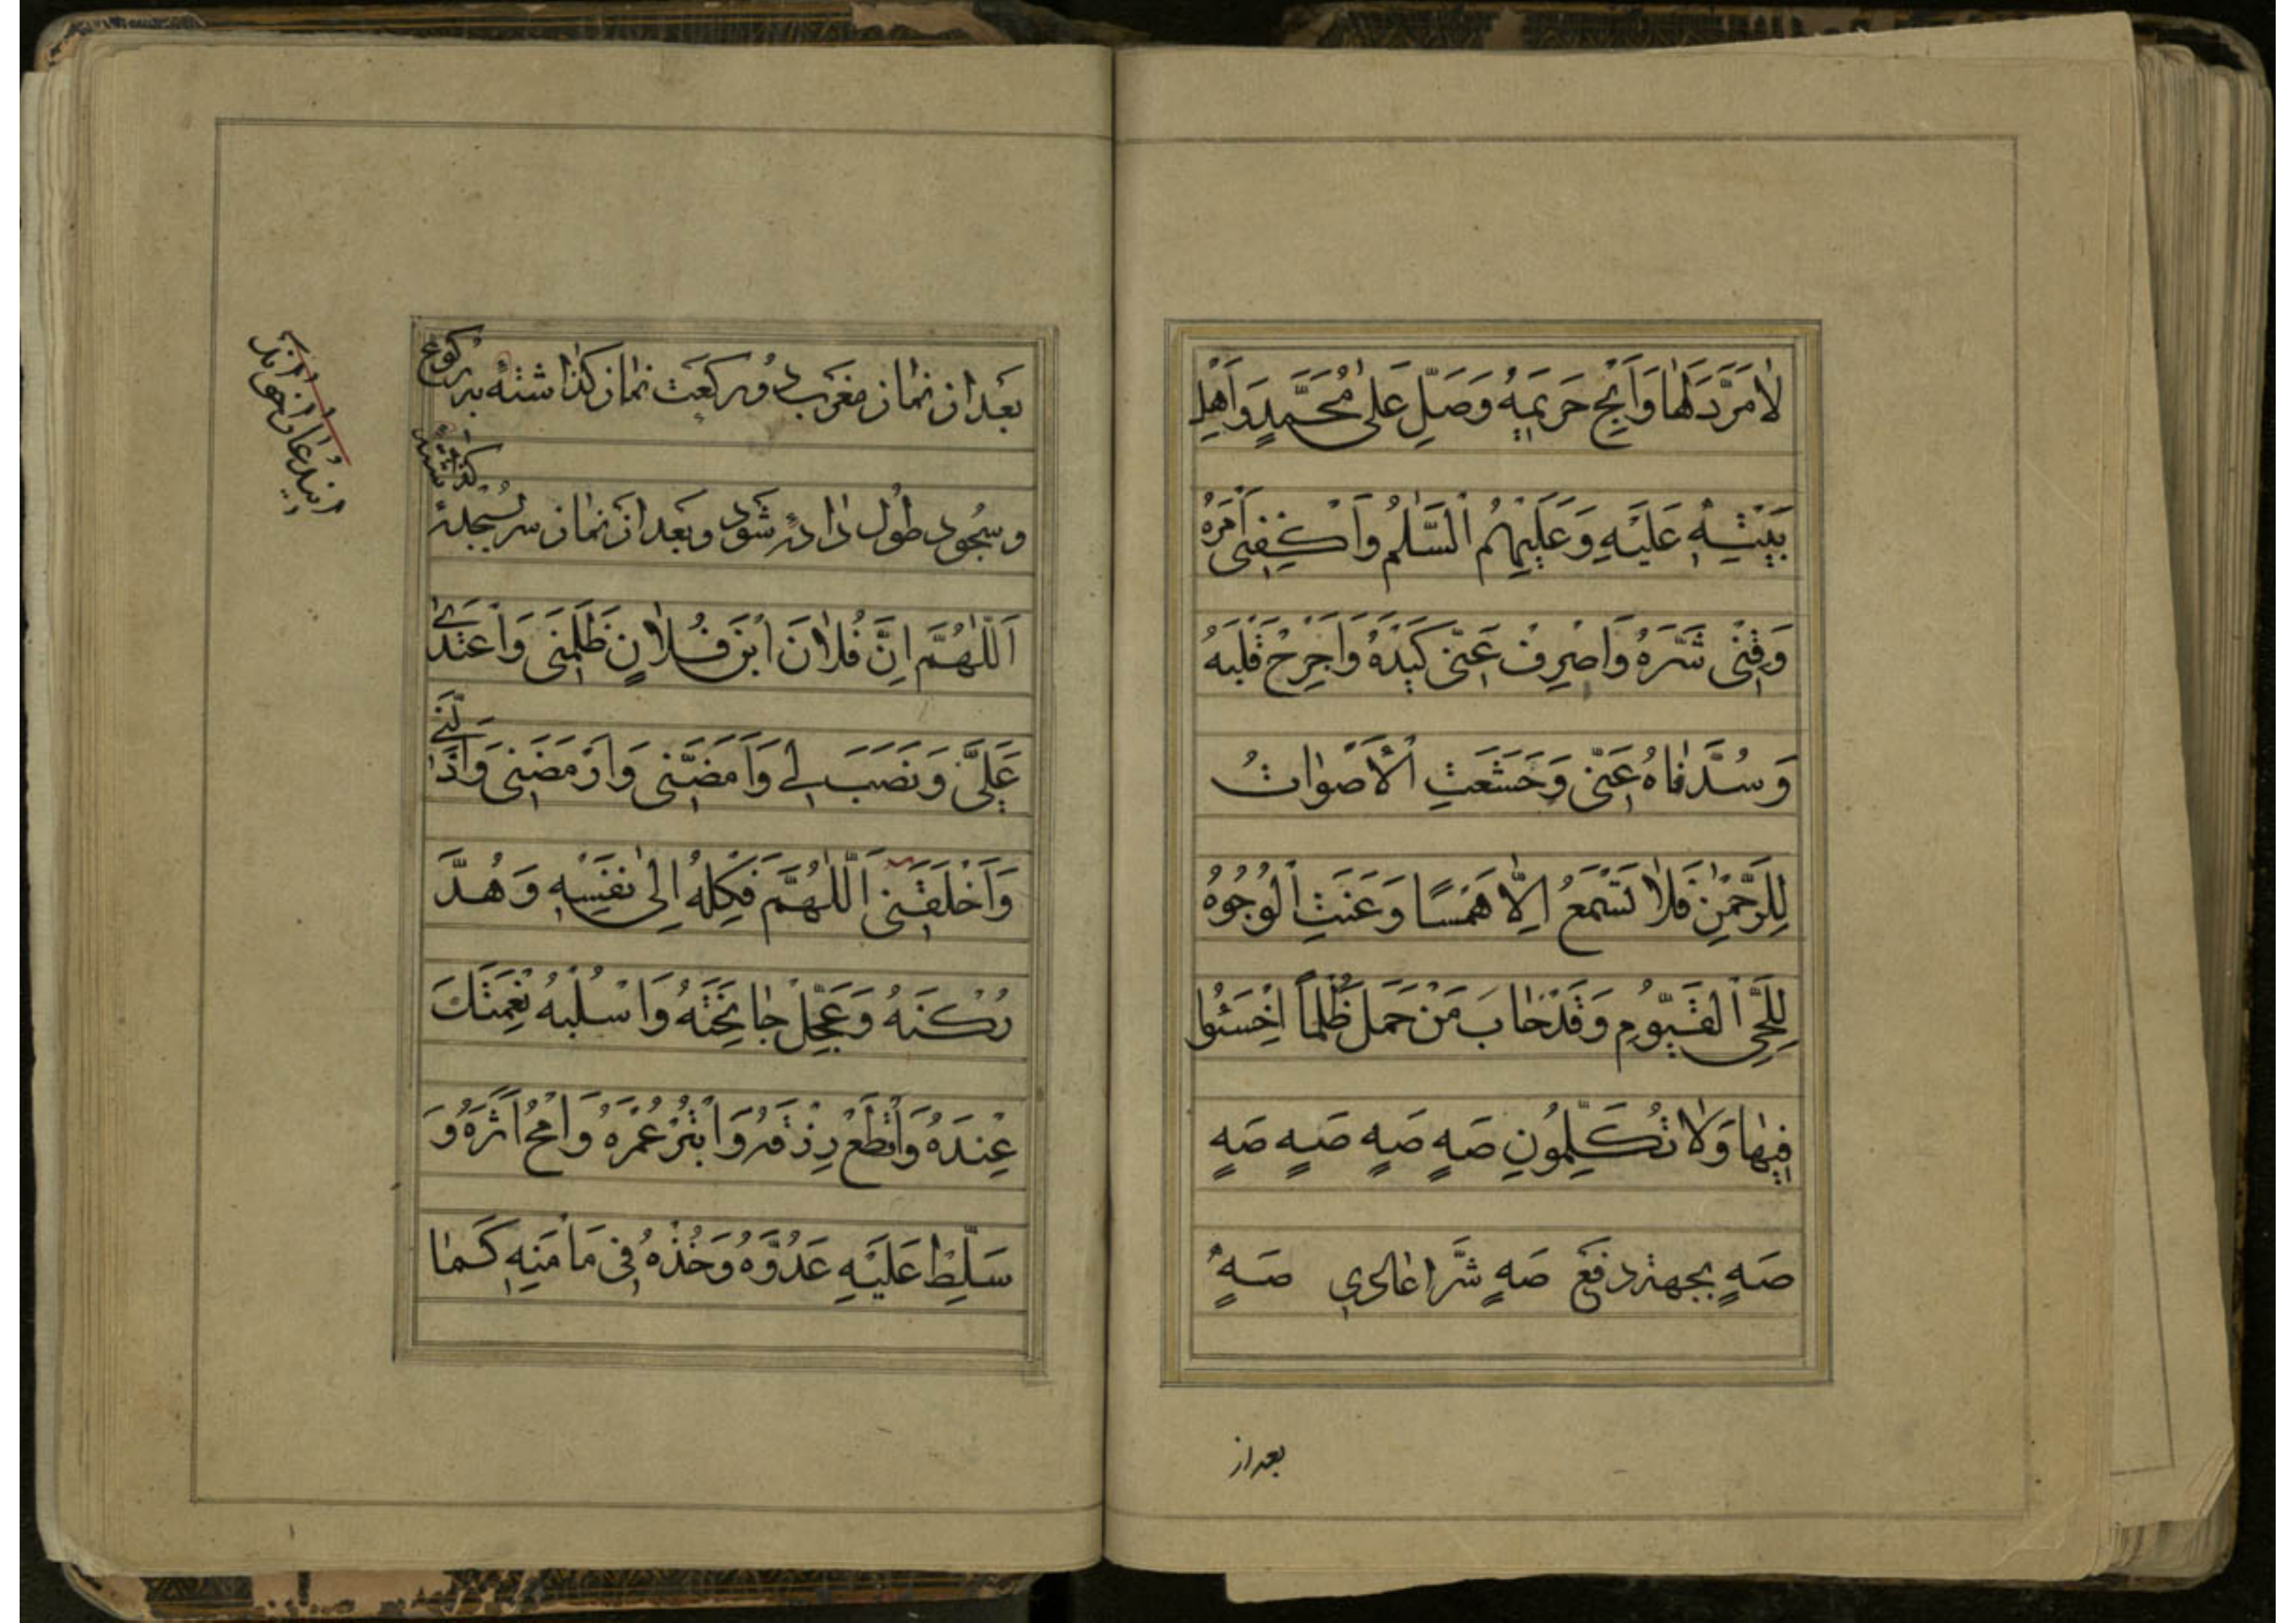 لَامَرَّدَ لَهَا وَاَبِحْ حَرِيمَهُ وَصَلِّ عَلٰى مُحَمَّدٍ وَاَهْلِ
بَيْتِهِ عَلَيْهِ وَعَلَيْهِمُ السَّلٰمُ وَاكْفِنِى اَمْرَهُ
وَقِنِى شَرَّهُ وَاصْرِفْ عَنّى كَيْدَهُ وَاجْرِحْ قَلْبَهُ
وَسُدَّ فٰاهُ عَنّى وَخَشَعَتِ الْاَصْوٰاتُ
لِلرَّحْمٰنِ فَلٰا تَسْمَعُ اِلّٰا هَمْسًا وَعَنَتِ الْوُجُوهُ
لِلْحَىِّ الْقَيّوُمِ وَقَدْ خٰابَ مَنْ حَمَلَ ظُلْمًا اِخْسَئُوا
فيهٰا وَلٰا تُكَلِّمُونِ صَهٍ صَهٍ صَهٍ صَهٍ
صَهٍ بجهتە دفع صَهٍ شَرّ اعادى صَهٍ
بعد از
بعد از نماز مغرب دو ركعت نماز كذاشته بركوع
وسجود طول داده شود وبعد از نماز سر بسجده
كذاشته
اَللّٰهُمَّ اِنَّ فُلٰانَ ابْنَ فُلٰانٍ ظَلَمَنى وَاعْتَدٰى
عَلَىَّ وَنَصَبَ لى وَاَمَضَّنى وَاَرْمَضَنى وَاَذَلَّنى
وَاَخْلَقَنى اَللّٰهُمَّ فَكِلْهُ اِلٰى نَفْسِهِ وَهُدَّ
رُكْنَهُ وَعَجِّلْ جٰائِحَتَهُ وَاسْلُبْهُ نِعْمَتَكَ
عِنْدَهُ وَاقْطَعْ رِزْقَهُ وَابْتُرْ عُمْرَهُ وَامْحُ اَثَرَهُ وَ
سَلِّطْ عَلَيْهِ عَدُوَّهُ وَخُذْهُ فى مَاْمَنِهِ كَمٰا